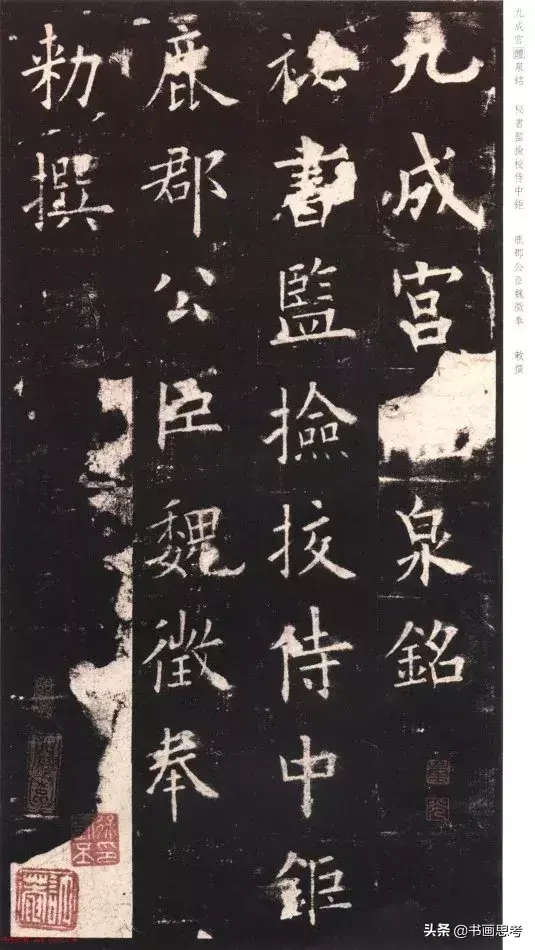 九成宮泉銘
祕書監撿挍侍中鉅
鹿郡公臣魏徵奉
勑撰
九成宮醴泉銘 秘書監撿校侍中鉅 鹿郡公臣魏徵奉 敕撰
头条 @书画思考